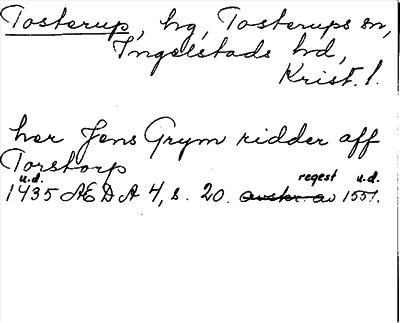 Tosterup, hg, Tosterups sn,
Ingelstads hd,
Krist. l.
her Jens Grym ridder aff
Torstorp
u.d. regest u.d.
1435 ÆDA 4, s. 20. avskr. av 1551.